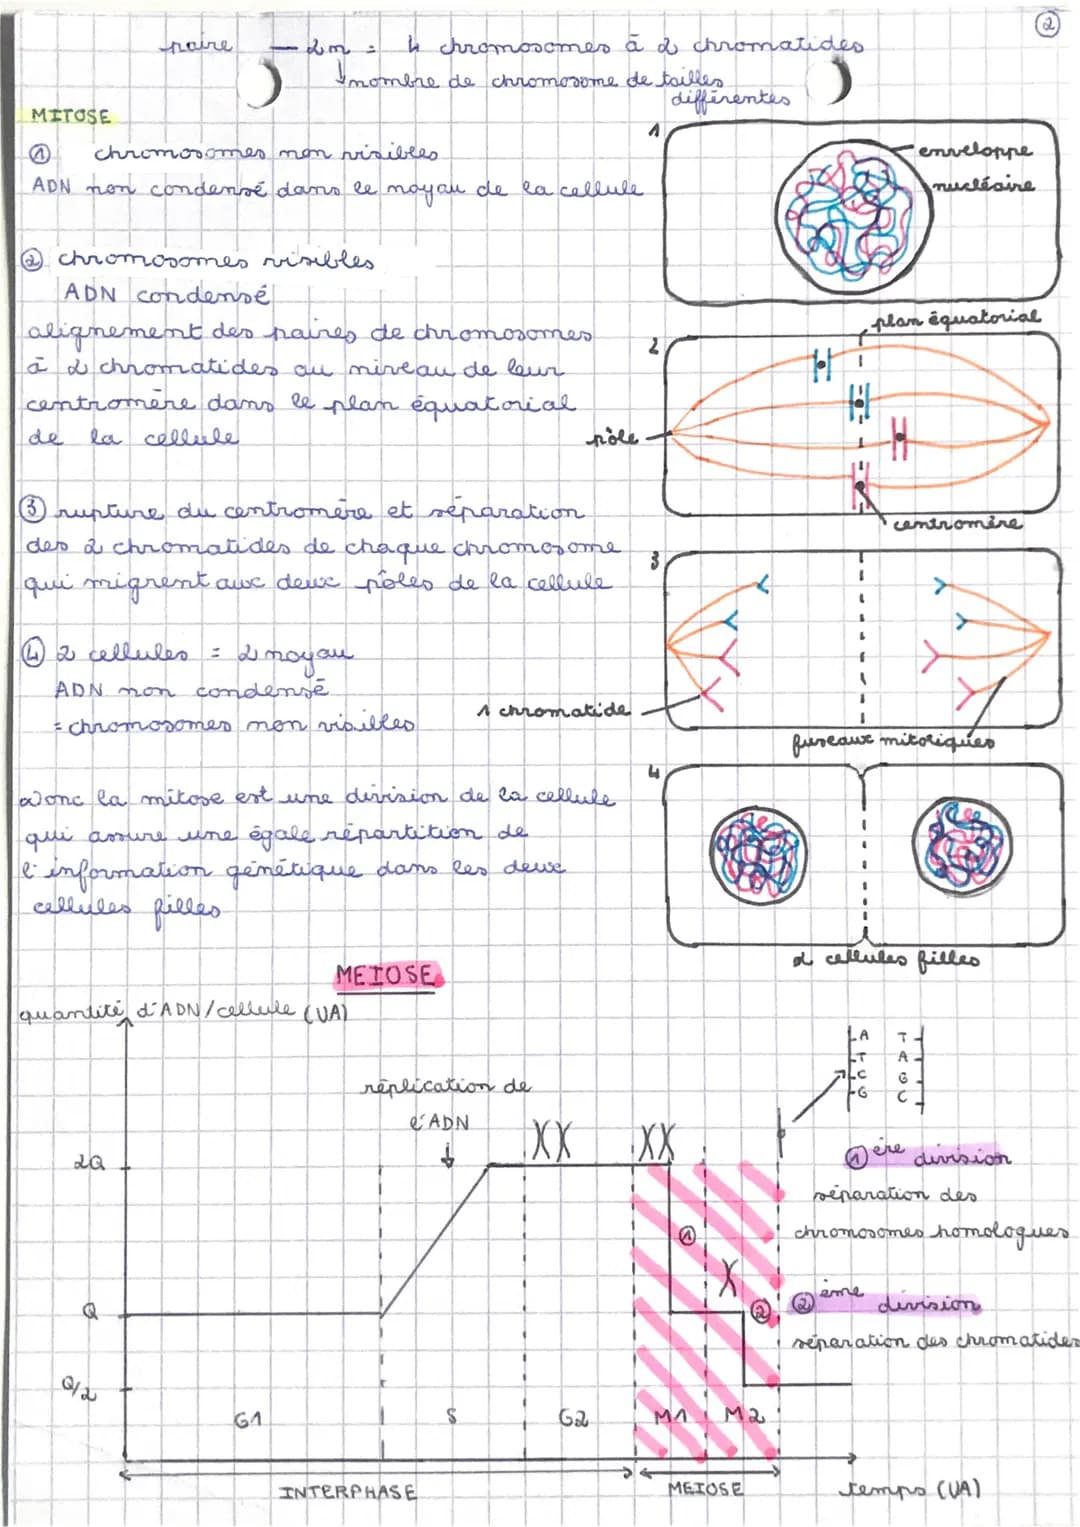 ②
paire — 2n = 4 chromosomes à 2 chromatides
nombre de chromosome de tailles
différentes
MITOSE
① chromosomes non visibles
ADN non condensé dans le noyau de la cellule
1
enveloppe
nucléaire
② chromosomes visibles
ADN condensé
alignement des paires de chromosomes
à 2 chromatides au niveau de leur
centromère dans le plan équatorial
de la cellule
2
plan équatorial
pôle
centromère
③ rupture du centromère et séparation
des 2 chromatides de chaque chromosome
qui migrent aux deux pôles de la cellule
3
1 chromatide
fuseaux mitotiques
④ 2 cellules = 2 noyau
ADN non condensé
= chromosomes non visibles
Donc la mitose est une division de la cellule
qui assure une égale répartition de
l'information génétique dans les deux
cellules filles
4
2 cellules filles
MEIOSE
quantité d'ADN/cellule (UA)
réplication de
l'ADN
A T
T A
C G
G C
2Q
Q
Q/2
①
②
① ère division
séparation des
chromosomes homologues
② ème division
séparation des chromatides
G1 S G2 M1 M2
INTERPHASE MEIOSE temps (UA)